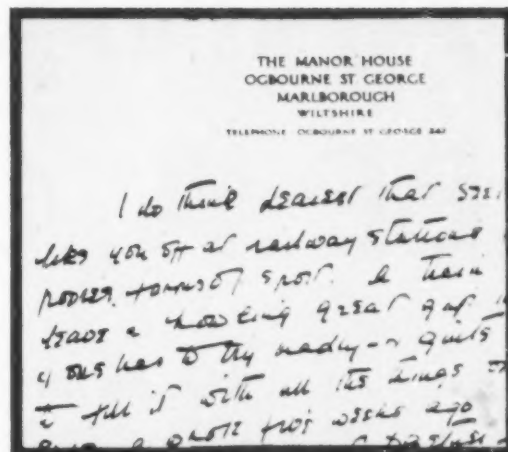 THE MANOR HOUSE
OGBOURNE ST GEORGE
MARLBOROUGH
WILTSHIRE
TELEPHONE OGBOURNE ST GEORGE
I do think dearest that
you off at railway stations
poorer forms of sport. A train
leave a howling great gap
& one has to try madly — quite
to fill it with all the things
a whole two weeks ago